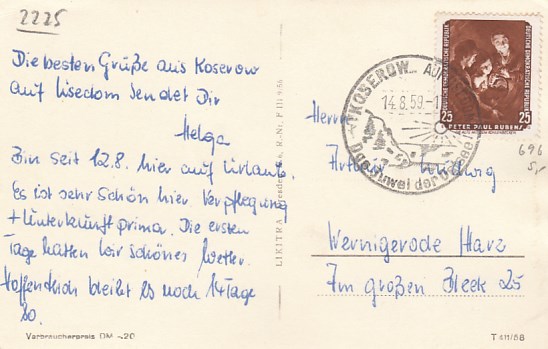 2225
Die besten Grüße aus Koserow
auf Usedom sendet Dir
Helga
Bin seit 12.8. hier auf Urlaub.
Es ist sehr schön hier. Verpflegung
+ Unterkunft prima. Die ersten
Tage hatten wir schönes Wetter.
Hoffentlich bleibt es noch 14 Tage
so.
Verbraucherpreis DM -.20
LIKITRA
KOSEROW
AUF
14.8.59
Das Juwel der Ostsee
DEUTSCHE DEMOKRATISCHE REPUBLIK
25
25
PETER PAUL RUBENS
696
5,-
Herrn
Wernigerode Harz
Im großen Bleek 25
T 411/58